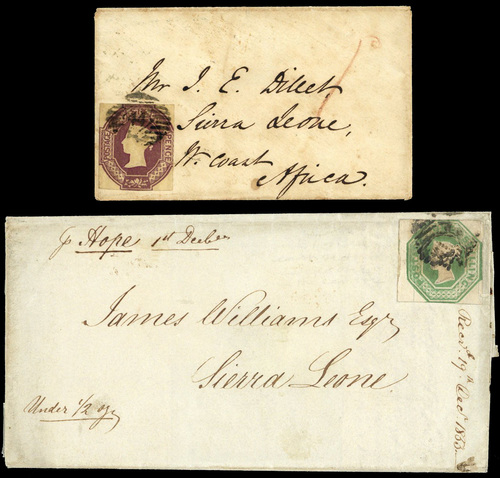 Mr J. E. Dilect
Sierra Leone,
Wt. Coast
Africa.
POSTAGE
PENCE
p Hope 1st Decber
James Williams Esqr
Sierra Leone.
Under 1/2 oz
Recd. 19th Decr. 1853.